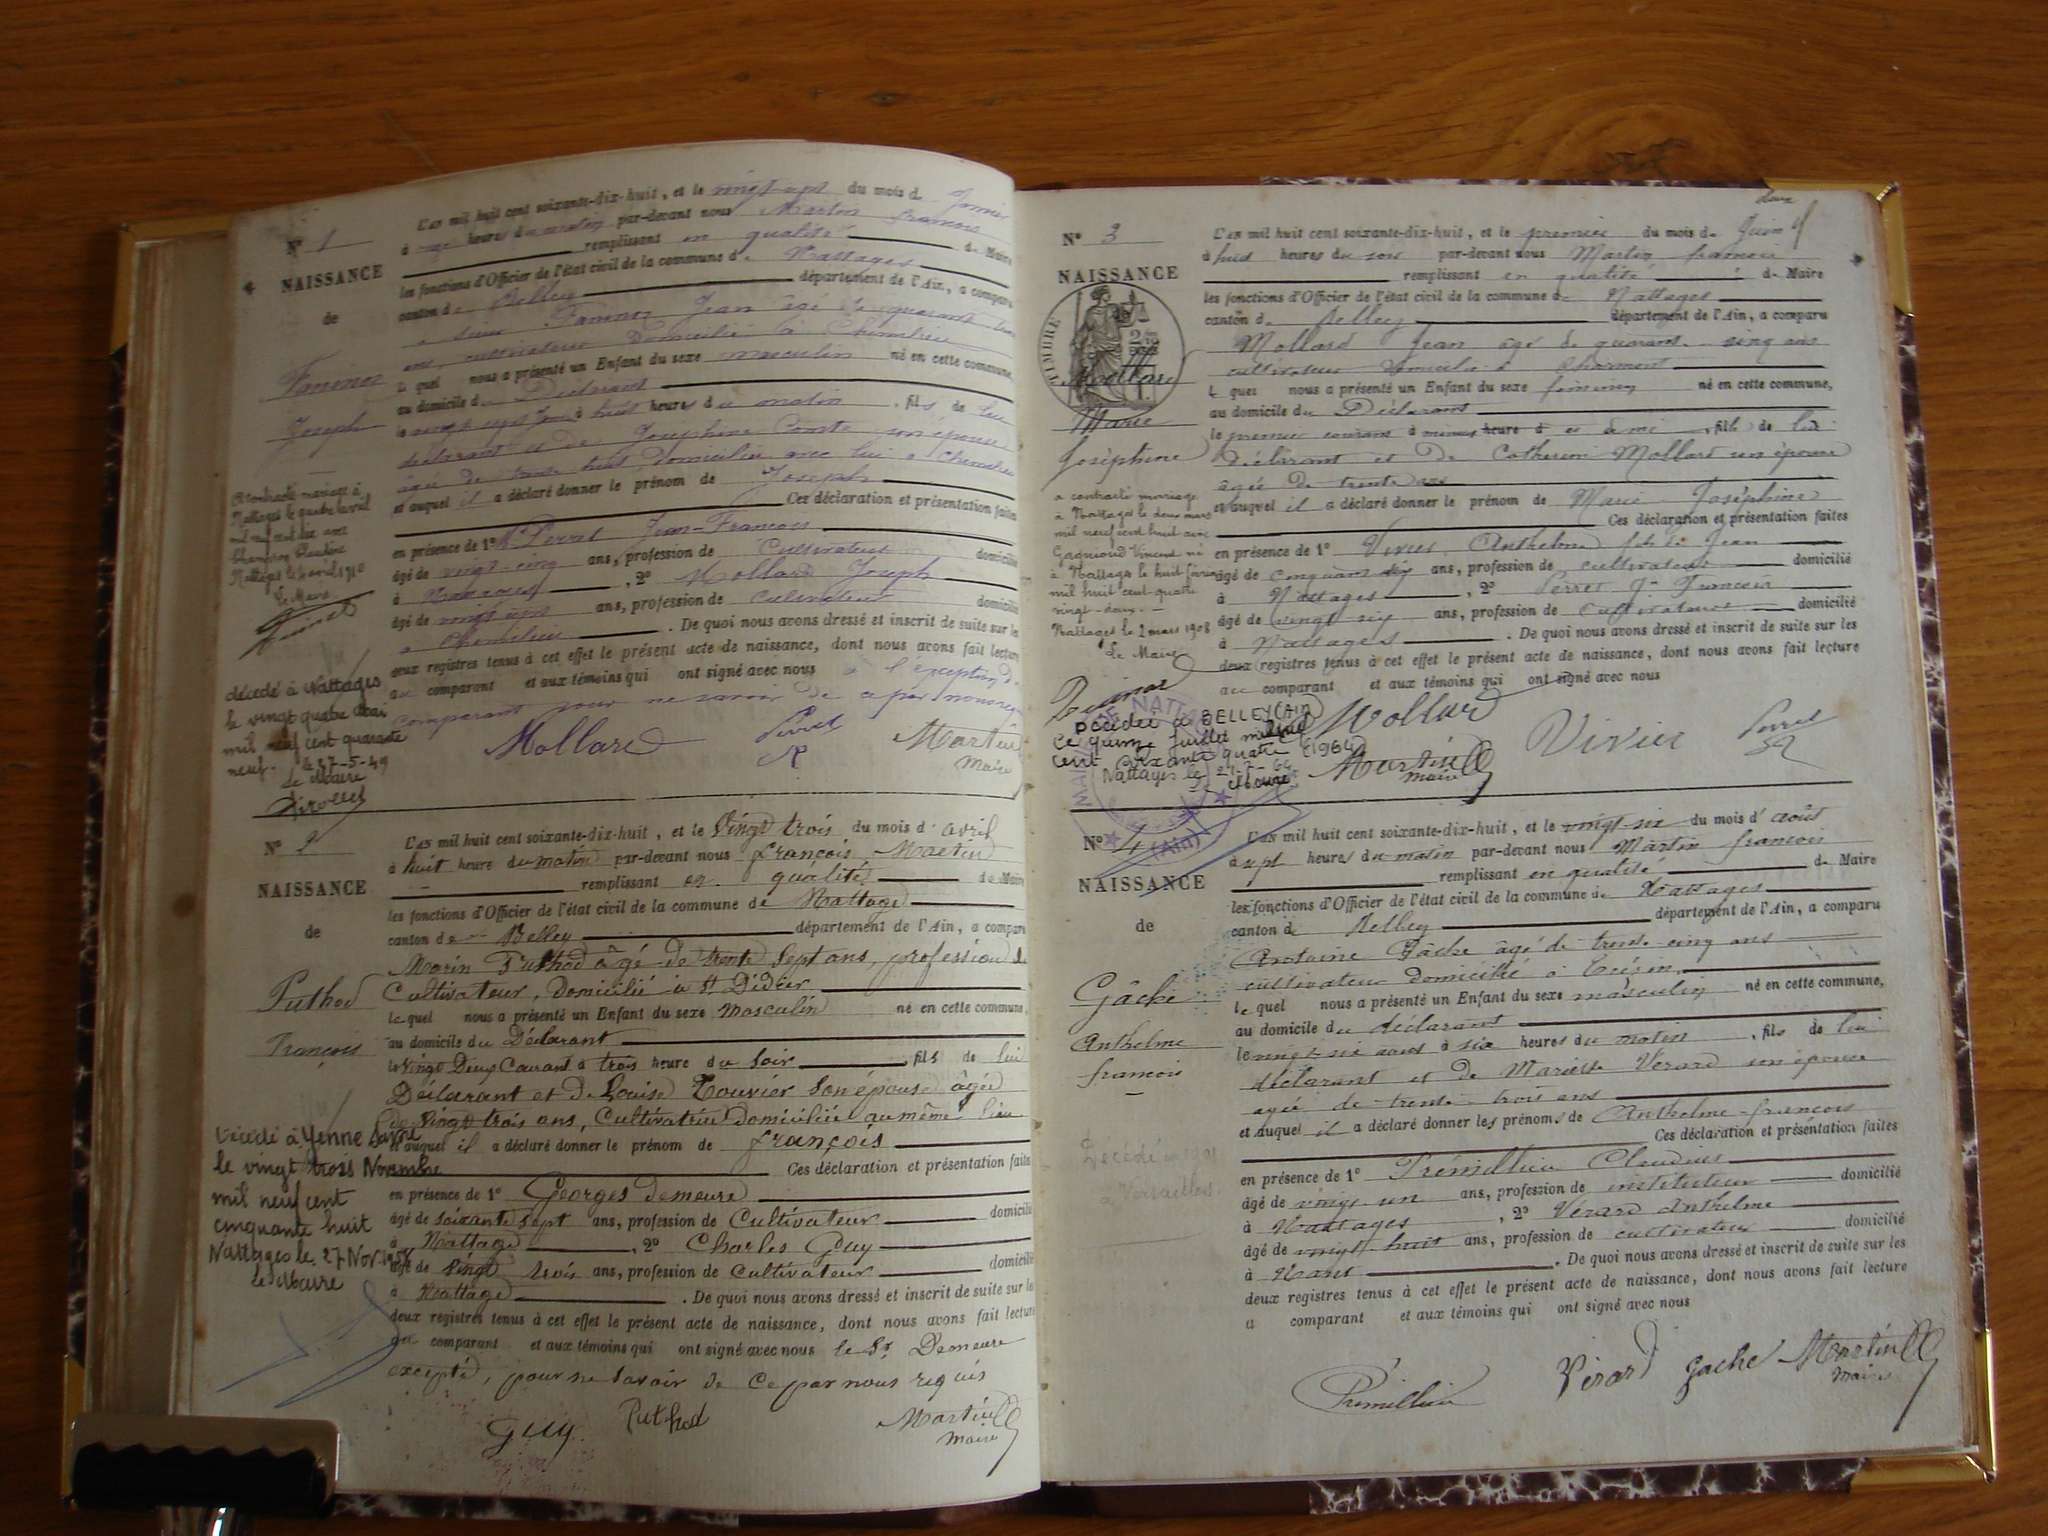 N° 1
NAISSANCE
de
Faninoz
Joseph
L'an mil huit cent soixante-dix-huit, et le vingt sept du mois d Janvier
à heures du matin par-devant nous Martin francois
remplissant en qualité de Maire
les fonctions d'Officier de l'état civil de la commune de Nattages
canton de Belley département de l'Ain, a comparu
Jean âgé de quarante
ans, cultivateur Domicilié à Chemilieu
Le quel nous a présenté un Enfant du sexe masculin né en cette commune,
au domicile du Déclarant
le vingt sept à huit heures du matin, fils de lui
déclarant et de Joséphine Comte son épouse
âgée de trente huit, domiciliée avec lui a Chemilieu
et auquel il a déclaré donner le prénom de Joseph
Ces déclaration et présentation faites
en présence de 1° Perret Jean-Francois
âgé de vingt-cinq ans, profession de Cultivateur domicilié
à Nattages, 2° Mollard Joseph
âgé de ans, profession de cultivateur domicilié
a Chemilieu. De quoi nous avons dressé et inscrit de suite sur les
deux registres tenus à cet effet le présent acte de naissance, dont nous avons fait lecture
au comparant et aux témoins qui ont signé avec nous à l'exception du
comparant pour ne savoir de ce par nous req
Mollard Perret Martin
Maire
a contracté mariage à
Nattages le quatre avril
mil neuf cent dix avec
Claudine
Nattages le 4 avril 1910
Le Maire
décédé à Nattages
le vingt quatre Mai
mil neuf cent quarante
neuf. le 27-5-49
Le Maire
N° 2
NAISSANCE
de
Puthod
François
L'an mil huit cent soixante-dix-huit, et le Vingt trois du mois d'avril
à huit heure du matin par-devant nous françois Martin
remplissant en qualité de Maire
les fonctions d'Officier de l'état civil de la commune de Nattage
canton de Belley département de l'Ain, a comparu
Marin Puthod âgé de trente Sept ans, profession de
Cultivateur, Domicilié à St Didier
Le quel nous a présenté un Enfant du sexe Masculin né en cette commune,
au domicile du Déclarant
le Vingt Deux Courant à trois heure du Soir, fils de lui
Déclarant et de Louise Touvier Son épouse âgée
de Vingt trois ans, Cultivatrice Domiciliée au même lieu
et auquel il a déclaré donner le prénom de françois
Ces déclaration et présentation faites
en présence de 1° Georges demeure
âgé de soixante sept ans, profession de Cultivateur domicilié
à Nattage, 2° Charles Guy
âgé de Vingt trois ans, profession de Cultivateur domicilié
à Nattage. De quoi nous avons dressé et inscrit de suite sur les
deux registres tenus à cet effet le présent acte de naissance, dont nous avons fait lecture
au comparant et aux témoins qui ont signé avec nous le Sr. Demeure
excepté, pour ne Savoir de Ce par nous requis
Guy Puthod Martin
Maire
Décédé à Yenne Savoie
le vingt trois Novembre
mil neuf cent
cinquante huit
Nattages le 27 Nov. 1958
le Maire
N° 3
NAISSANCE
TIMBRE
Mollard
Marie
Joséphine
L'an mil huit cent soixante-dix-huit, et le premier du mois de Juin
à huit heures du soir par-devant nous Martin francois
remplissant en qualité de Maire
les fonctions d'Officier de l'état civil de la commune de Nattages
canton de Belley département de l'Ain, a comparu
Mollard Jean âgé de quarante cinq ans
cultivateur domicilié à Charmont
Le quel nous a présenté un Enfant du sexe féminin né en cette commune,
au domicile du Déclarant
le premier courant à heure et demi, fille de lui
déclarant et de Catherine Mollard son épouse
âgée de trente ans
et auquel il a déclaré donner le prénom de Marie Joséphine
Ces déclaration et présentation faites
en présence de 1° Vivier Anthelme fils de Jean
âgé de cinquante six ans, profession de cultivateur domicilié
à Nattages, 2° Perret Jn Francois
âgé de vingt six ans, profession de cultivateur domicilié
à Nattages. De quoi nous avons dressé et inscrit de suite sur les
deux registres tenus à cet effet le présent acte de naissance, dont nous avons fait lecture
au comparant et aux témoins qui ont signé avec nous
Mollard Vivier Perret
Martin
Maire
a contracté mariage
à Nattages le deux mars
mil neuf cent huit avec
Gagnioud Vincent né
à Nattages le huit février
mil huit cent quatre
vingt-deux.
Nattages le 2 mars 1908
Le Maire
Décédée à BELLEY (Ain)
le quinze Juillet mil neuf
cent soixante quatre (1964)
Nattages le 27-7-64
le Maire
N° 4
NAISSANCE
de
Gâche
Anthelme
francois
L'an mil huit cent soixante-dix-huit, et le vingt-six du mois d'août
à sept heures du matin par-devant nous Martin francois
remplissant en qualité de Maire
les fonctions d'Officier de l'état civil de la commune de Nattages
canton de Belley département de l'Ain, a comparu
Antoine Gâche âgé de trente-cinq ans
cultivateur domicilié à Crésin
Le quel nous a présenté un Enfant du sexe masculin né en cette commune,
au domicile du déclarant
le vingt-six à six heures du matin, fils de lui
déclarant et de Mariette Vérard son épouse
agée de trente-trois ans
et auquel il a déclaré donner les prénoms de Anthelme-francois
Ces déclaration et présentation faites
en présence de 1° Prémillieu Claudius
âgé de vingt-un ans, profession de instituteur domicilié
à Nattages, 2° Vérard Anthelme
âgé de vingt-huit ans, profession de cultivateur domicilié
à Nant. De quoi nous avons dressé et inscrit de suite sur les
deux registres tenus à cet effet le présent acte de naissance, dont nous avons fait lecture
au comparant et aux témoins qui ont signé avec nous
Prémillieu Vérard Gache Martin
Maire
Décédé en
à Versailles.